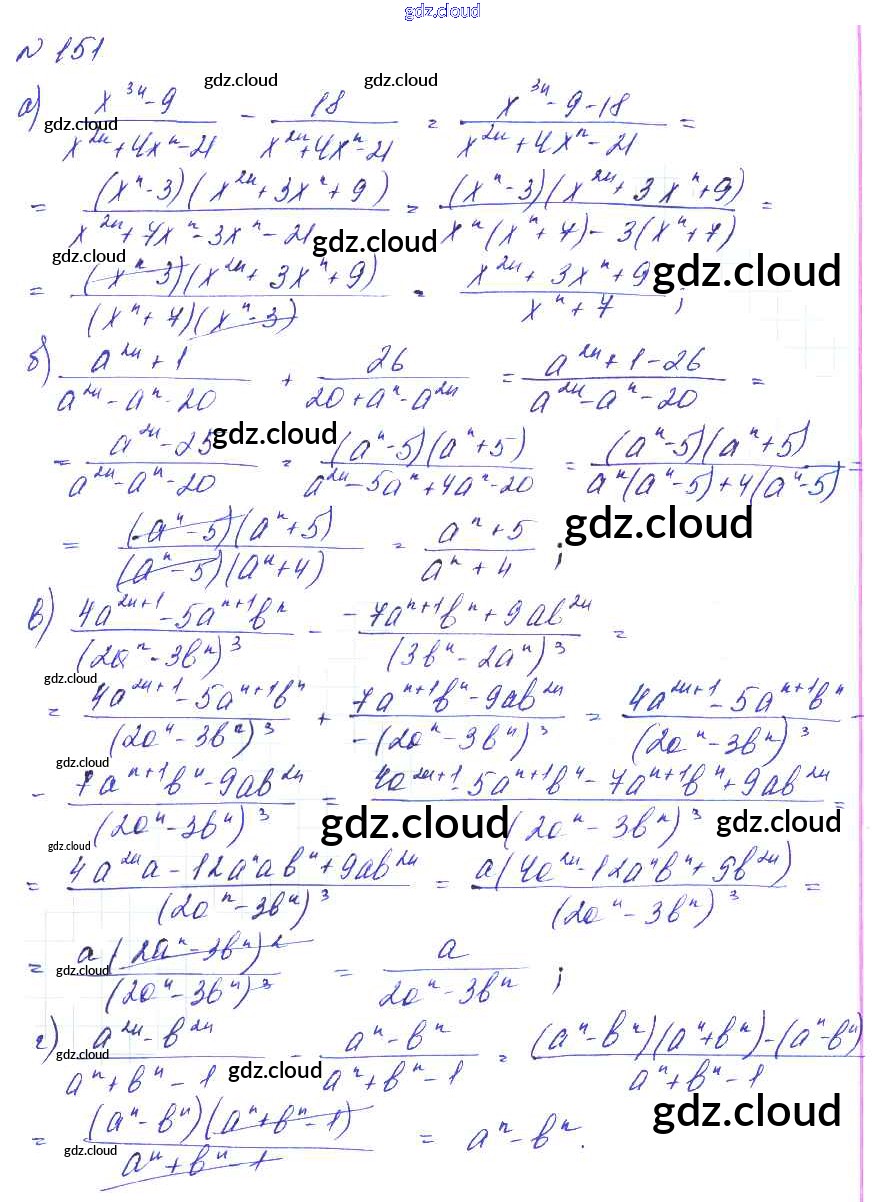 gdz.cloud
№ 151
а) (x^{3n} - 9)/(x^{2n} + 4x^n - 21) - 18/(x^{2n} + 4x^n - 21) = (x^{3n} - 9 - 18)/(x^{2n} + 4x^n - 21) =
gdz.cloud gdz.cloud gdz.cloud
= (x^n - 3)(x^{2n} + 3x^n + 9)/(x^{2n} + 7x^n - 3x^n - 21) = (x^n - 3)(x^{2n} + 3x^n + 9)/(x^n(x^n + 7) - 3(x^n + 7)) =
gdz.cloud
= (x^n - 3)(x^{2n} + 3x^n + 9)/((x^n + 7)(x^n - 3)) = (x^{2n} + 3x^n + 9)/(x^n + 7);
gdz.cloud
б) (a^{2n} + 1)/(a^{2n} - a^n - 20) + 26/(20 + a^n - a^{2n}) = (a^{2n} + 1 - 26)/(a^{2n} - a^n - 20) =
= (a^{2n} - 25)/(a^{2n} - a^n - 20) = (a^n - 5)(a^n + 5)/(a^{2n} - 5a^n + 4a^n - 20) = (a^n - 5)(a^n + 5)/(a^n(a^n - 5) + 4(a^n - 5)) =
gdz.cloud
= (a^n - 5)(a^n + 5)/((a^n - 5)(a^n + 4)) = (a^n + 5)/(a^n + 4);
gdz.cloud
в) (4a^{2n+1} - 5a^{n+1}b^n)/(2a^n - 3b^n)^3 - (-7a^{n+1}b^n + 9ab^{2n})/(3b^n - 2a^n)^3 =
gdz.cloud
= (4a^{2n+1} - 5a^{n+1}b^n)/(2a^n - 3b^n)^3 + (7a^{n+1}b^n - 9ab^{2n})/(-(2a^n - 3b^n)^3) = (4a^{2n+1} - 5a^{n+1}b^n)/(2a^n - 3b^n)^3 -
gdz.cloud
- (7a^{n+1}b^n - 9ab^{2n})/(2a^n - 3b^n)^3 = (4a^{2n+1} - 5a^{n+1}b^n - 7a^{n+1}b^n + 9ab^{2n})/(2a^n - 3b^n)^3 =
gdz.cloud gdz.cloud gdz.cloud
= (4a^{2n}a - 12a^nab^n + 9ab^{2n})/(2a^n - 3b^n)^3 = a(4a^{2n} - 12a^nb^n + 9b^{2n})/(2a^n - 3b^n)^3 =
= a(2a^n - 3b^n)^2/(2a^n - 3b^n)^3 = a/(2a^n - 3b^n);
gdz.cloud
г) (a^{2n} - b^{2n})/(a^n + b^n - 1) - (a^n - b^n)/(a^n + b^n - 1) = ((a^n - b^n)(a^n + b^n) - (a^n - b^n))/(a^n + b^n - 1)
gdz.cloud gdz.cloud
= (a^n - b^n)(a^n + b^n - 1)/(a^n + b^n - 1) = a^n - b^n.
gdz.cloud gdz.cloud